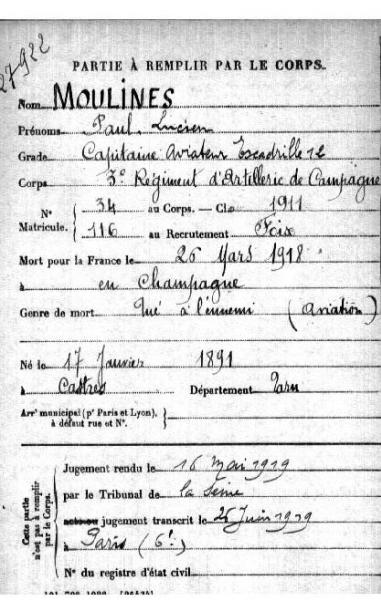 27922
PARTIE À REMPLIR PAR LE CORPS.
Nom MOULINES
Prénoms Paul, Lucien
Grade Capitaine Aviateur Escadrille 12
Corps 3e Régiment d'Artillerie de Campagne
N° Matricule. { 34 au Corps. — Cl. 1911
116 au Recrutement Foix
Mort pour la France le 26 Mars 1918
à en Champagne
Genre de mort Tué à l'ennemi (Aviation)
Né le 17 Janvier 1891
à Castres Département Tarn
Arr' municipal (p' Paris et Lyon), à défaut rue et N°. }
Cette partie n'est pas à remplir par le Corps.
Jugement rendu le 16 Mai 1919
par le Tribunal de la Seine
jugement transcrit le 25 Juin 1919
à Paris (6e)
N° du registre d'état civil